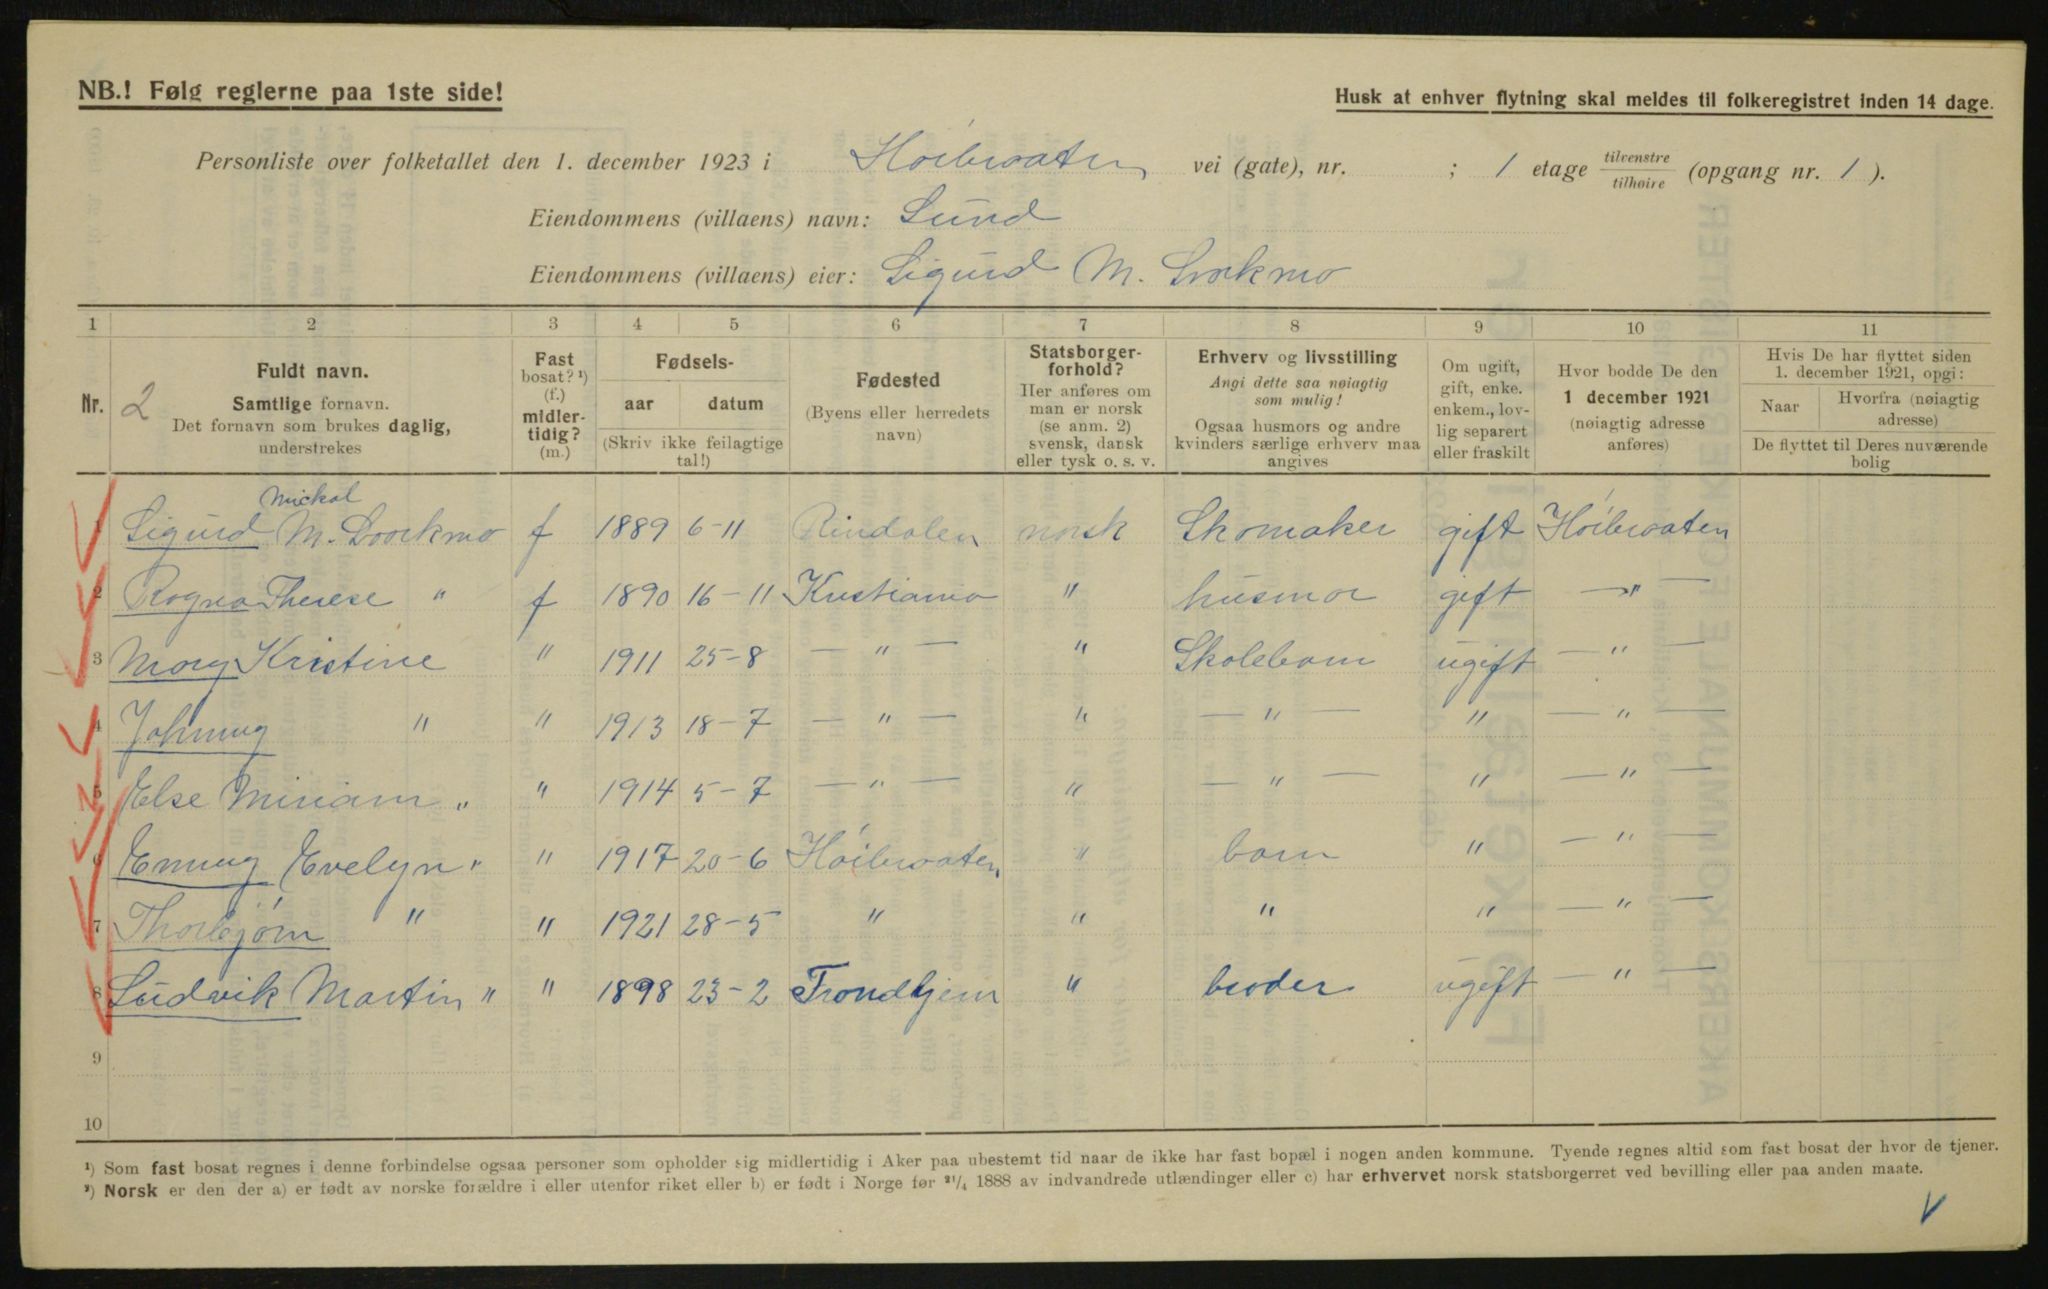 NB.! Følg reglerne paa 1ste side!
Husk at enhver flytning skal meldes til folkeregistret inden 14 dage.
Personliste over folketallet den 1. december 1923 i Høibraaten vei (gate), nr. ; 1 etage tilvenstre/tilhøire (opgang nr. 1 ).
Eiendommens (villaens) navn: Lund
Eiendommens (villaens) eier: Sigurd M.
1 2 3 4 5 6 7 8 9 10 11
Nr. 2
Fuldt navn.
Samtlige fornavn.
Det fornavn som brukes daglig,
understrekes
Fast
bosat? ¹)
(f.)
midler-
tidig?
(m.)
Fødsels-
aar datum
(Skriv ikke feilagtige
tal!)
Fødested
(Byens eller herredets
navn)
Statsborger-
forhold?
Her anføres om
man er norsk
(se anm. 2)
svensk, dansk
eller tysk o. s. v.
Erhverv og livsstilling
Angi dette saa nøiagtig
som mulig!
Ogsaa husmors og andre
kvinders særlige erhverv maa
angives
Om ugift,
gift, enke.
enkem., lov-
lig separert
eller fraskilt
Hvor bodde De den
1 december 1921
(nøiagtig adresse
anføres)
Hvis De har flyttet siden
1. december 1921, opgi:
Naar Hvorfra (nøiagtig
adresse)
De flyttet til Deres nuværende
bolig
Mickal
1 Sigurd M. f 1889 6-11 Rindalen norsk Skomaker gift Høibraaten
2 Ragna Therese " f 1890 16-11 Kristiania " husmor gift — " —
3 Mary Kristine " 1911 25-8 — " — " Skolebarn ugift — " —
4 " " 1913 18-7 — " — " — " — " — " —
5 Else Miriam " " 1914 5-7 — " — " — " — " — " —
6 Evelyn " " 1917 20-6 Høibraaten " barn " — " —
7 Thorbjørn " " 1921 28-5 " " " " — " —
8 Ludvik Martin " " 1898 23-2 Trondhjem " broder ugift — " —
9
10
¹) Som fast bosat regnes i denne forbindelse ogsaa personer som opholder sig midlertidig i Aker paa ubestemt tid naar de ikke har fast bopæl i nogen anden kommune. Tyende regnes altid som fast bosat der hvor de tjener.
²) Norsk er den der a) er født av norske forældre i eller utenfor riket eller b) er født i Norge før ²¹/₄ 1888 av indvandrede utlændinger eller c) har erhvervet norsk statsborgerret ved bevilling eller paa anden maate.